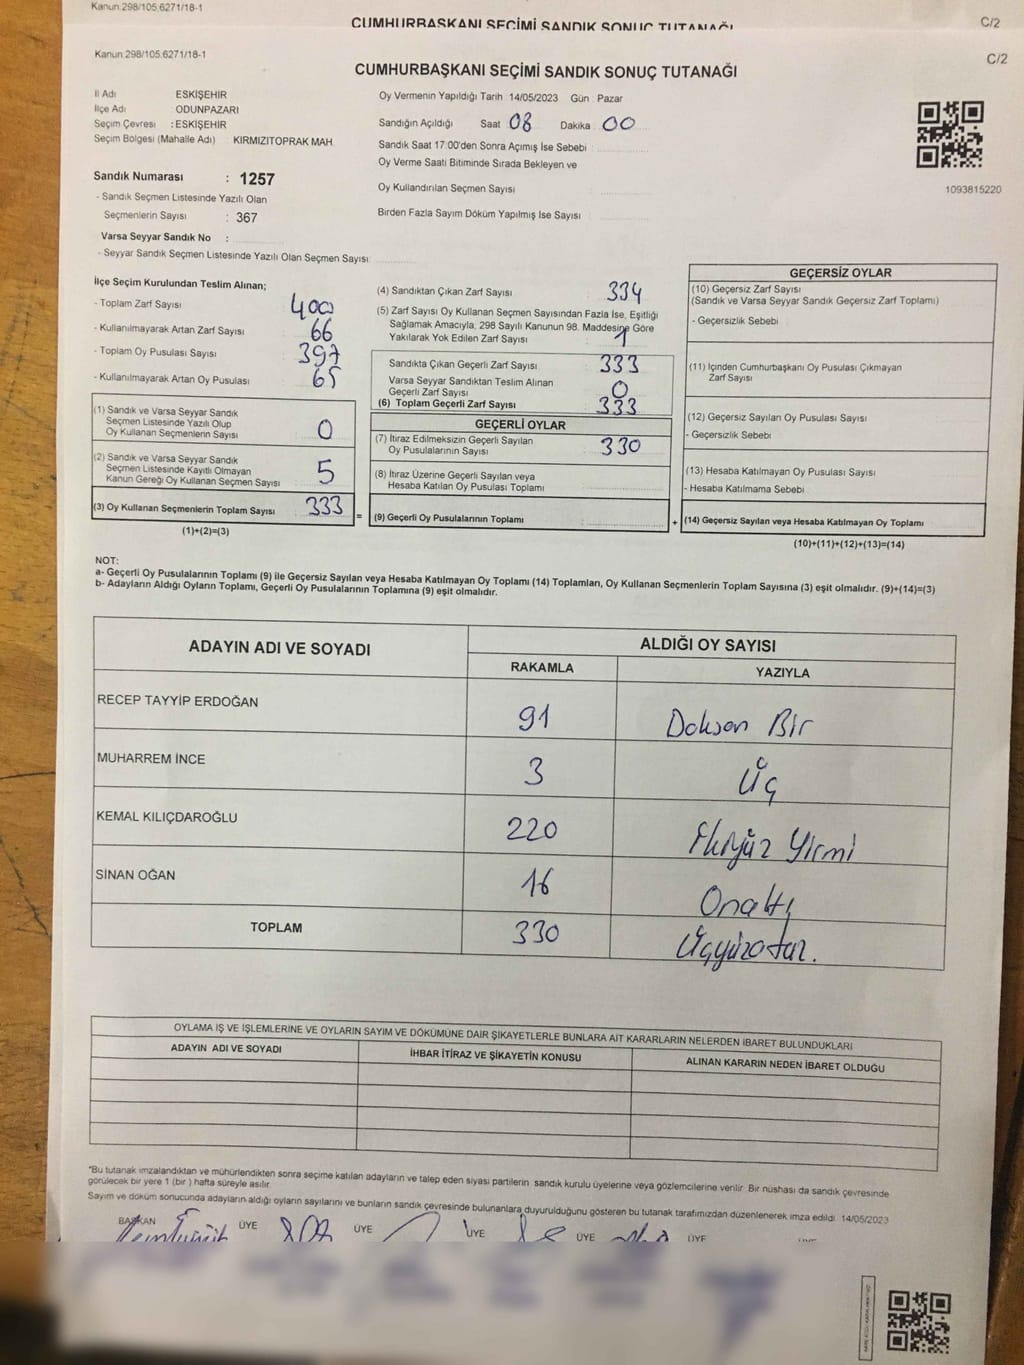 Kanun 298/105.6271/18-1
CUMHURBAŞKANI SEÇİMİ SANDIK SONUÇ TUTANAĞI
C/2
Kanun 298/105.6271/18-1
C/2
CUMHURBAŞKANI SEÇİMİ SANDIK SONUÇ TUTANAĞI
İl Adı ESKİŞEHİR
İlçe Adı ODUNPAZARI
Seçim Çevresi : ESKİŞEHİR
Seçim Bölgesi (Mahalle Adı) KIRMIZITOPRAK MAH.
Sandık Numarası : 1257
- Sandık Seçmen Listesinde Yazılı Olan
Seçmenlerin Sayısı : 367
Varsa Seyyar Sandık No :
- Seyyar Sandık Seçmen Listesinde Yazılı Olan Seçmen Sayısı
Oy Vermenin Yapıldığı Tarih 14/05/2023 Gün Pazar
Sandığın Açıldığı Saat 08 Dakika 00
Sandık Saat 17:00'den Sonra Açımış İse Sebebi :
Oy Verme Saati Bitiminde Sırada Bekleyen ve
Oy Kullandırılan Seçmen Sayısı :
Birden Fazla Sayım Döküm Yapılmış İse Sayısı :
1093815220
İlçe Seçim Kurulundan Teslim Alınan;
- Toplam Zarf Sayısı 400
- Kullanılmayarak Artan Zarf Sayısı 66
- Toplam Oy Pusulası Sayısı 397
- Kullanılmayarak Artan Oy Pusulası 65
(1) Sandık ve Varsa Seyyar Sandık
Seçmen Listesinde Yazılı Olup
Oy Kullanan Seçmenlerin Sayısı 0
(2) Sandık ve Varsa Seyyar Sandık
Seçmen Listesinde Kayıtlı Olmayan
Kanun Gereği Oy Kullanan Seçmen Sayısı 5
(3) Oy Kullanan Seçmenlerin Toplam Sayısı 333
(1)+(2)=(3)
(4) Sandıktan Çıkan Zarf Sayısı 334
(5) Zarf Sayısı Oy Kullanan Seçmen Sayısından Fazla İse, Eşitliği
Sağlamak Amacıyla, 298 Sayılı Kanunun 98. Maddesine Göre
Yakılarak Yok Edilen Zarf Sayısı 1
Sandıkta Çıkan Geçerli Zarf Sayısı 333
Varsa Seyyar Sandıktan Teslim Alınan
Geçerli Zarf Sayısı 0
(6) Toplam Geçerli Zarf Sayısı 333
GEÇERLİ OYLAR
(7) İtiraz Edilmeksizin Geçerli Sayılan
Oy Pusulalarının Sayısı 330
(8) İtiraz Üzerine Geçerli Sayılan veya
Hesaba Katılan Oy Pusulası Toplamı
= (9) Geçerli Oy Pusulalarının Toplamı :
GEÇERSİZ OYLAR
(10) Geçersiz Zarf Sayısı
(Sandık ve Varsa Seyyar Sandık Geçersiz Zarf Toplamı)
- Geçersizlik Sebebi :
(11) İçinden Cumhurbaşkanı Oy Pusulası Çıkmayan
Zarf Sayısı
(12) Geçersiz Sayılan Oy Pusulası Sayısı
- Geçersizlik Sebebi
(13) Hesaba Katılmayan Oy Pusulası Sayısı
- Hesaba Katılmama Sebebi
+ (14) Geçersiz Sayılan veya Hesaba Katılmayan Oy Toplamı
(10)+(11)+(12)+(13)=(14)
NOT:
a- Geçerli Oy Pusulalarının Toplamı (9) ile Geçersiz Sayılan veya Hesaba Katılmayan Oy Toplamı (14) Toplamları, Oy Kullanan Seçmenlerin Toplam Sayısına (3) eşit olmalıdır. (9)+(14)=(3)
b- Adayların Aldığı Oyların Toplamı, Geçerli Oy Pusulalarının Toplamına (9) eşit olmalıdır.
ADAYIN ADI VE SOYADI ALDIĞI OY SAYISI
RAKAMLA YAZIYLA
RECEP TAYYİP ERDOĞAN 91 Doksan Bir
MUHARREM İNCE 3 Üç
KEMAL KILIÇDAROĞLU 220 İkiyüz Yirmi
SİNAN OĞAN 16 Onaltı
TOPLAM 330 Üçyüzotuz.
OYLAMA İŞ VE İŞLEMLERİNE VE OYLARIN SAYIM VE DÖKÜMÜNE DAİR ŞİKAYETLERLE BUNLARA AİT KARARLARIN NELERDEN İBARET BULUNDUKLARI
ADAYIN ADI VE SOYADI İHBAR İTİRAZ VE ŞİKAYETİN KONUSU ALINAN KARARIN NEDEN İBARET OLDUĞU
*Bu tutanak imzalandıktan ve mühürlendikten sonra seçime katılan adayların ve talep eden siyasi partilerin sandık kurulu üyelerine veya gözlemcilerine verilir. Bir nüshası da sandık çevresinde
görülecek bir yere 1 (bir) hafta süreyle asılır.
Sayım ve döküm sonucunda adayların aldığı oyların sayılarını ve bunların sandık çevresinde bulunanlara duyurulduğunu gösteren bu tutanak tarafımızdan düzenlenerek imza edildi. 14/05/2023
BAŞKAN ÜYE ÜYE ÜYE ÜYE ÜYE